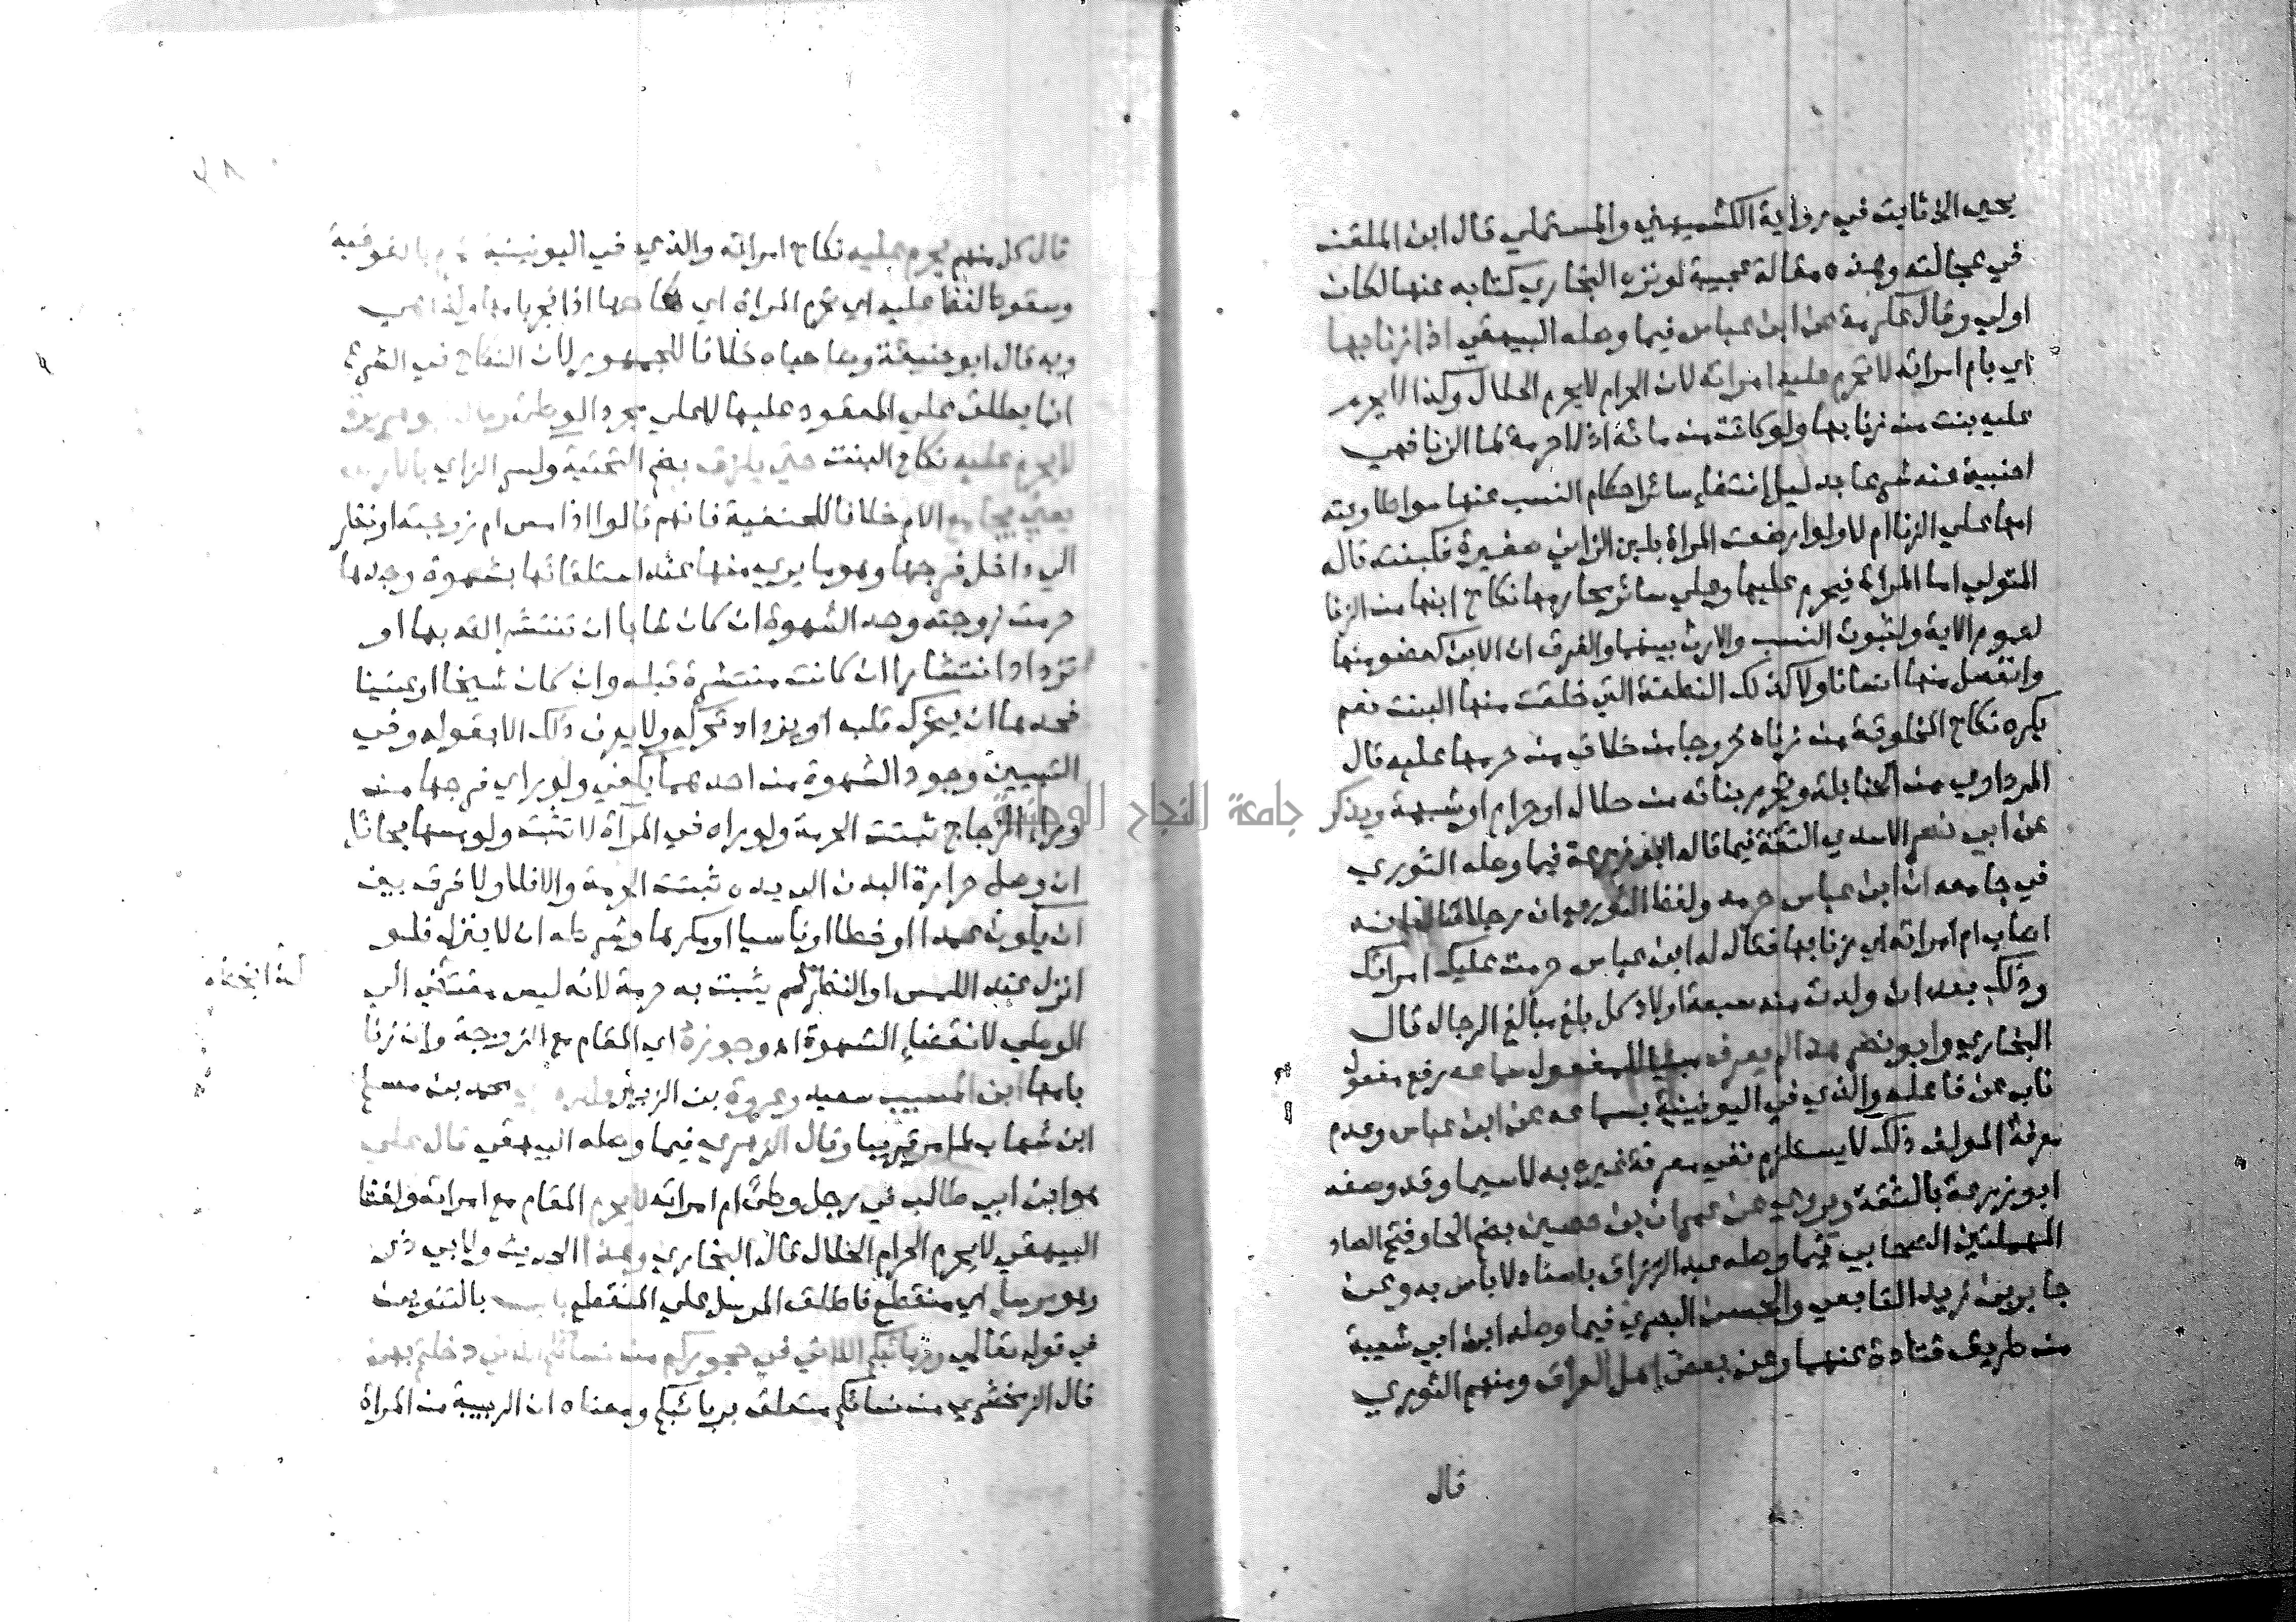 يحيى الخ ثابت في رواية الكشميهني والمستملي قال ابن الملقن
في عجالته وهذه مقالة عجيبة لو نزه البخاري كتابه عنها لكان
اولي وقال عكرمة عن ابن عباس فيما وصله البيهقي اذا زنا بها
اي بام امراته لا تحرم عليه امراته لان الحرام لا يحرم الحلال وكذا لا يحرم
عليه بنت من زنا بها ولو كانت من مائه اذ لا حرمة لما الزنا فهي
اجنبية عنه شرعا بدليل انتفاء سائر احكام النسب عنها سواطاوعته
امها علي الزنا ام لا ولو ارضعت المراة بلبن الزاني صغيرة فكبنته قاله
المتولي اما المراة فيحرم عليها وعلي سائر محارمها نكاح ابنها من الزنا
لعموم الاية ولثبوت النسب والارث بينهما والفرق ان الابن كعضو منها
وانفصل منها انسانا ولا كذلك النطفة التي خلقت منها البنت نعم
يكره نكاح المخلوقة من زناه خروجا من خلاف من حرمها عليه قال
المرداوي من الحنابلة وتحرم بناته من حلال او حرام او شبهة ويذكر
عن ابي نصر الاسدي الثقة فيما قاله ابو زرعة فيما وصله الثوري
في جامعه ان ابن عباس حرمه ولفظ الثوري ان رجلا قال انه
اصاب ام امراته اي زنا بها فقال له ابن عباس حرمت عليك امراتك
وذلك بعد ان ولدت منه سبعة اولاد كل بلغ مبالغ الرجال قال
البخاري وابو نصر هذا لم يعرف مبنيا للمفعول سماعه رفع مفعول
ناب عن فاعله والذي في اليونينية بسماعه عن ابن عباس وعدم
معرفة المولف ذلك لا يستلزم نفي معرفة غيره به لاسيما وقد وصفه
ابو زرعة بالثقة ويروي عن عمران بن حصين بضم الحا وفتح الصاد
المهملتين الصحابي فيما وصله عبد الرزاق باسناد لا باس به وعن
جابر بن زيد التابعي والحسن البصري فيما وصله ابن ابي شيبة
من طريق قتادة عنهما وعن بعض اهل العراق ومنهم الثوري
قال
قال كل منهم يحرم عليه نكاح امراته والذي في اليونينية تحرم بالفوقية
وسقوط لفظ عليه اي تحرم المراة اي نكاحها اذا فجر بامها ولذا
وبه قال ابو حنيفة وصاحباه خلافا للجمهور لان النكاح في الشرع
انما يطلق علي المعقود عليها لا علي مجرد الوطي
لا يحرم عليه نكاح البنت حتي يلزق بضم التحتية وكسر الزاي
يعني يجامع الام خلافا للحنفية فانهم قالوا اذا مس ام زوجته او نظر
الي داخل فرجها وهو ما يري منها عند استلقائها بشهوة وجدها
حرمت زوجته وحد الشهوة ان كان شابا ان تنتشر الته بها او
تزداد انتشارا ان كانت منتشرة قبله وان كان شيخا او عنينا
فحدها ان يتحرك قلبه او يزداد تحركه ولا يعرف ذلك الا بقوله وفي
التبيين وجود الشهوة من احدهما يكفي ولو راي فرجها من
وراء الزجاج ثبتت الحرمة ولو راه في المرآة لا تثبت ولو مسها بحائل
ان وصل حرارة البدن الي يده ثبتت الحرمة والا فلا ولا فرق بين
ان يكون عمدا او خطا او ناسيا او مكرها وشرطه ان لا ينزل فلو
انزل عند اللمس او النظر لم يثبت به حرمة لانه ليس مفض الي
الوطي لانقضاء الشهوة اه وجوزه اي المقام مع الزوجة وان زنا
بامها ابن المسيب سعيد وعروة بن الزبير محمد بن مسلم
ابن شهاب لما مر قريبا وقال الزهري فيما وصله البيهقي قال علي
هو ابن ابي طالب في رجل وطئ ام امراته لا يحرم المقام مع امراته ولفظ
البيهقي لا يحرم الحرام الحلال قال البخاري وهذا الحديث ولابي ذر
وهو مرسل اي منقطع فاطلق المرسل علي المنقطع باب بالتنوين
في قوله تعالي وربائبكم اللاتي في حجوركم من نسائكم اللاتي دخلتم بهن
قال الزمخشري من نسائكم متعلق بربائبكم ومعناه ان الربيبة من المراة
جامعة النجاح الوطنية